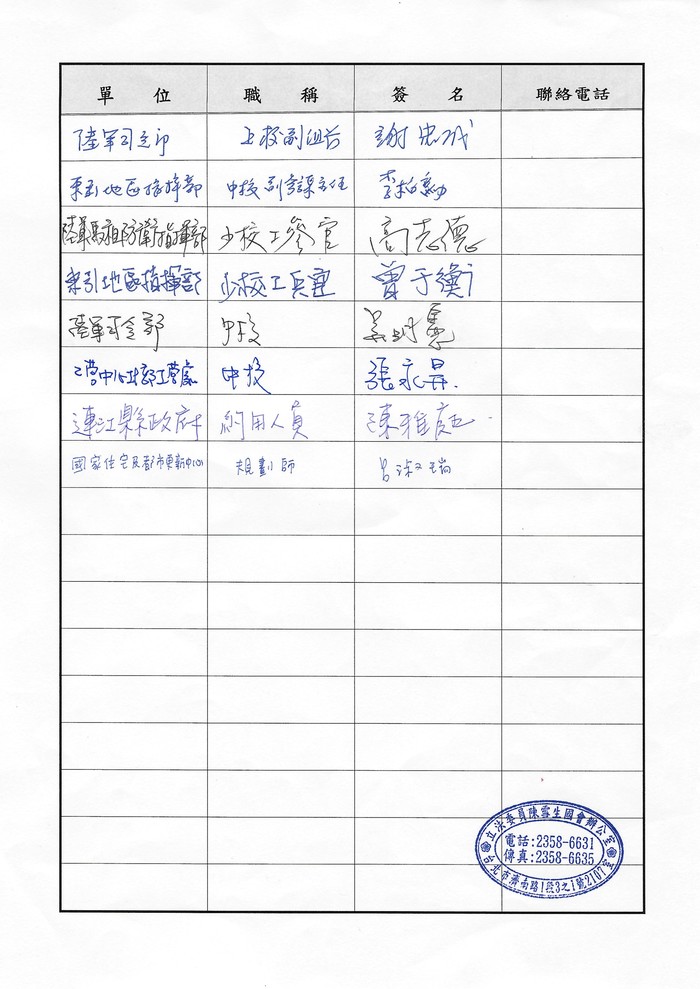 單位 職稱 簽名 聯絡電話
陸軍司令部 上校副組長 謝忠成
東引地區指揮部 中校 李柏勳
陸軍馬祖防衛指揮部 少校工參官 高志德
東引地區指揮部 少校工兵官 曾于衡
陸軍司令部 中校
工營中心北部工營處 中校 張永昇
連江縣政府 約用人員 陳雅
國家住宅及都市更新中心 規劃師 呂淑瑞
立法委員陳雪生國會辦公室
電話:2358-6631
傳真:2358-6635
台北市濟南路1段3之1號2107室